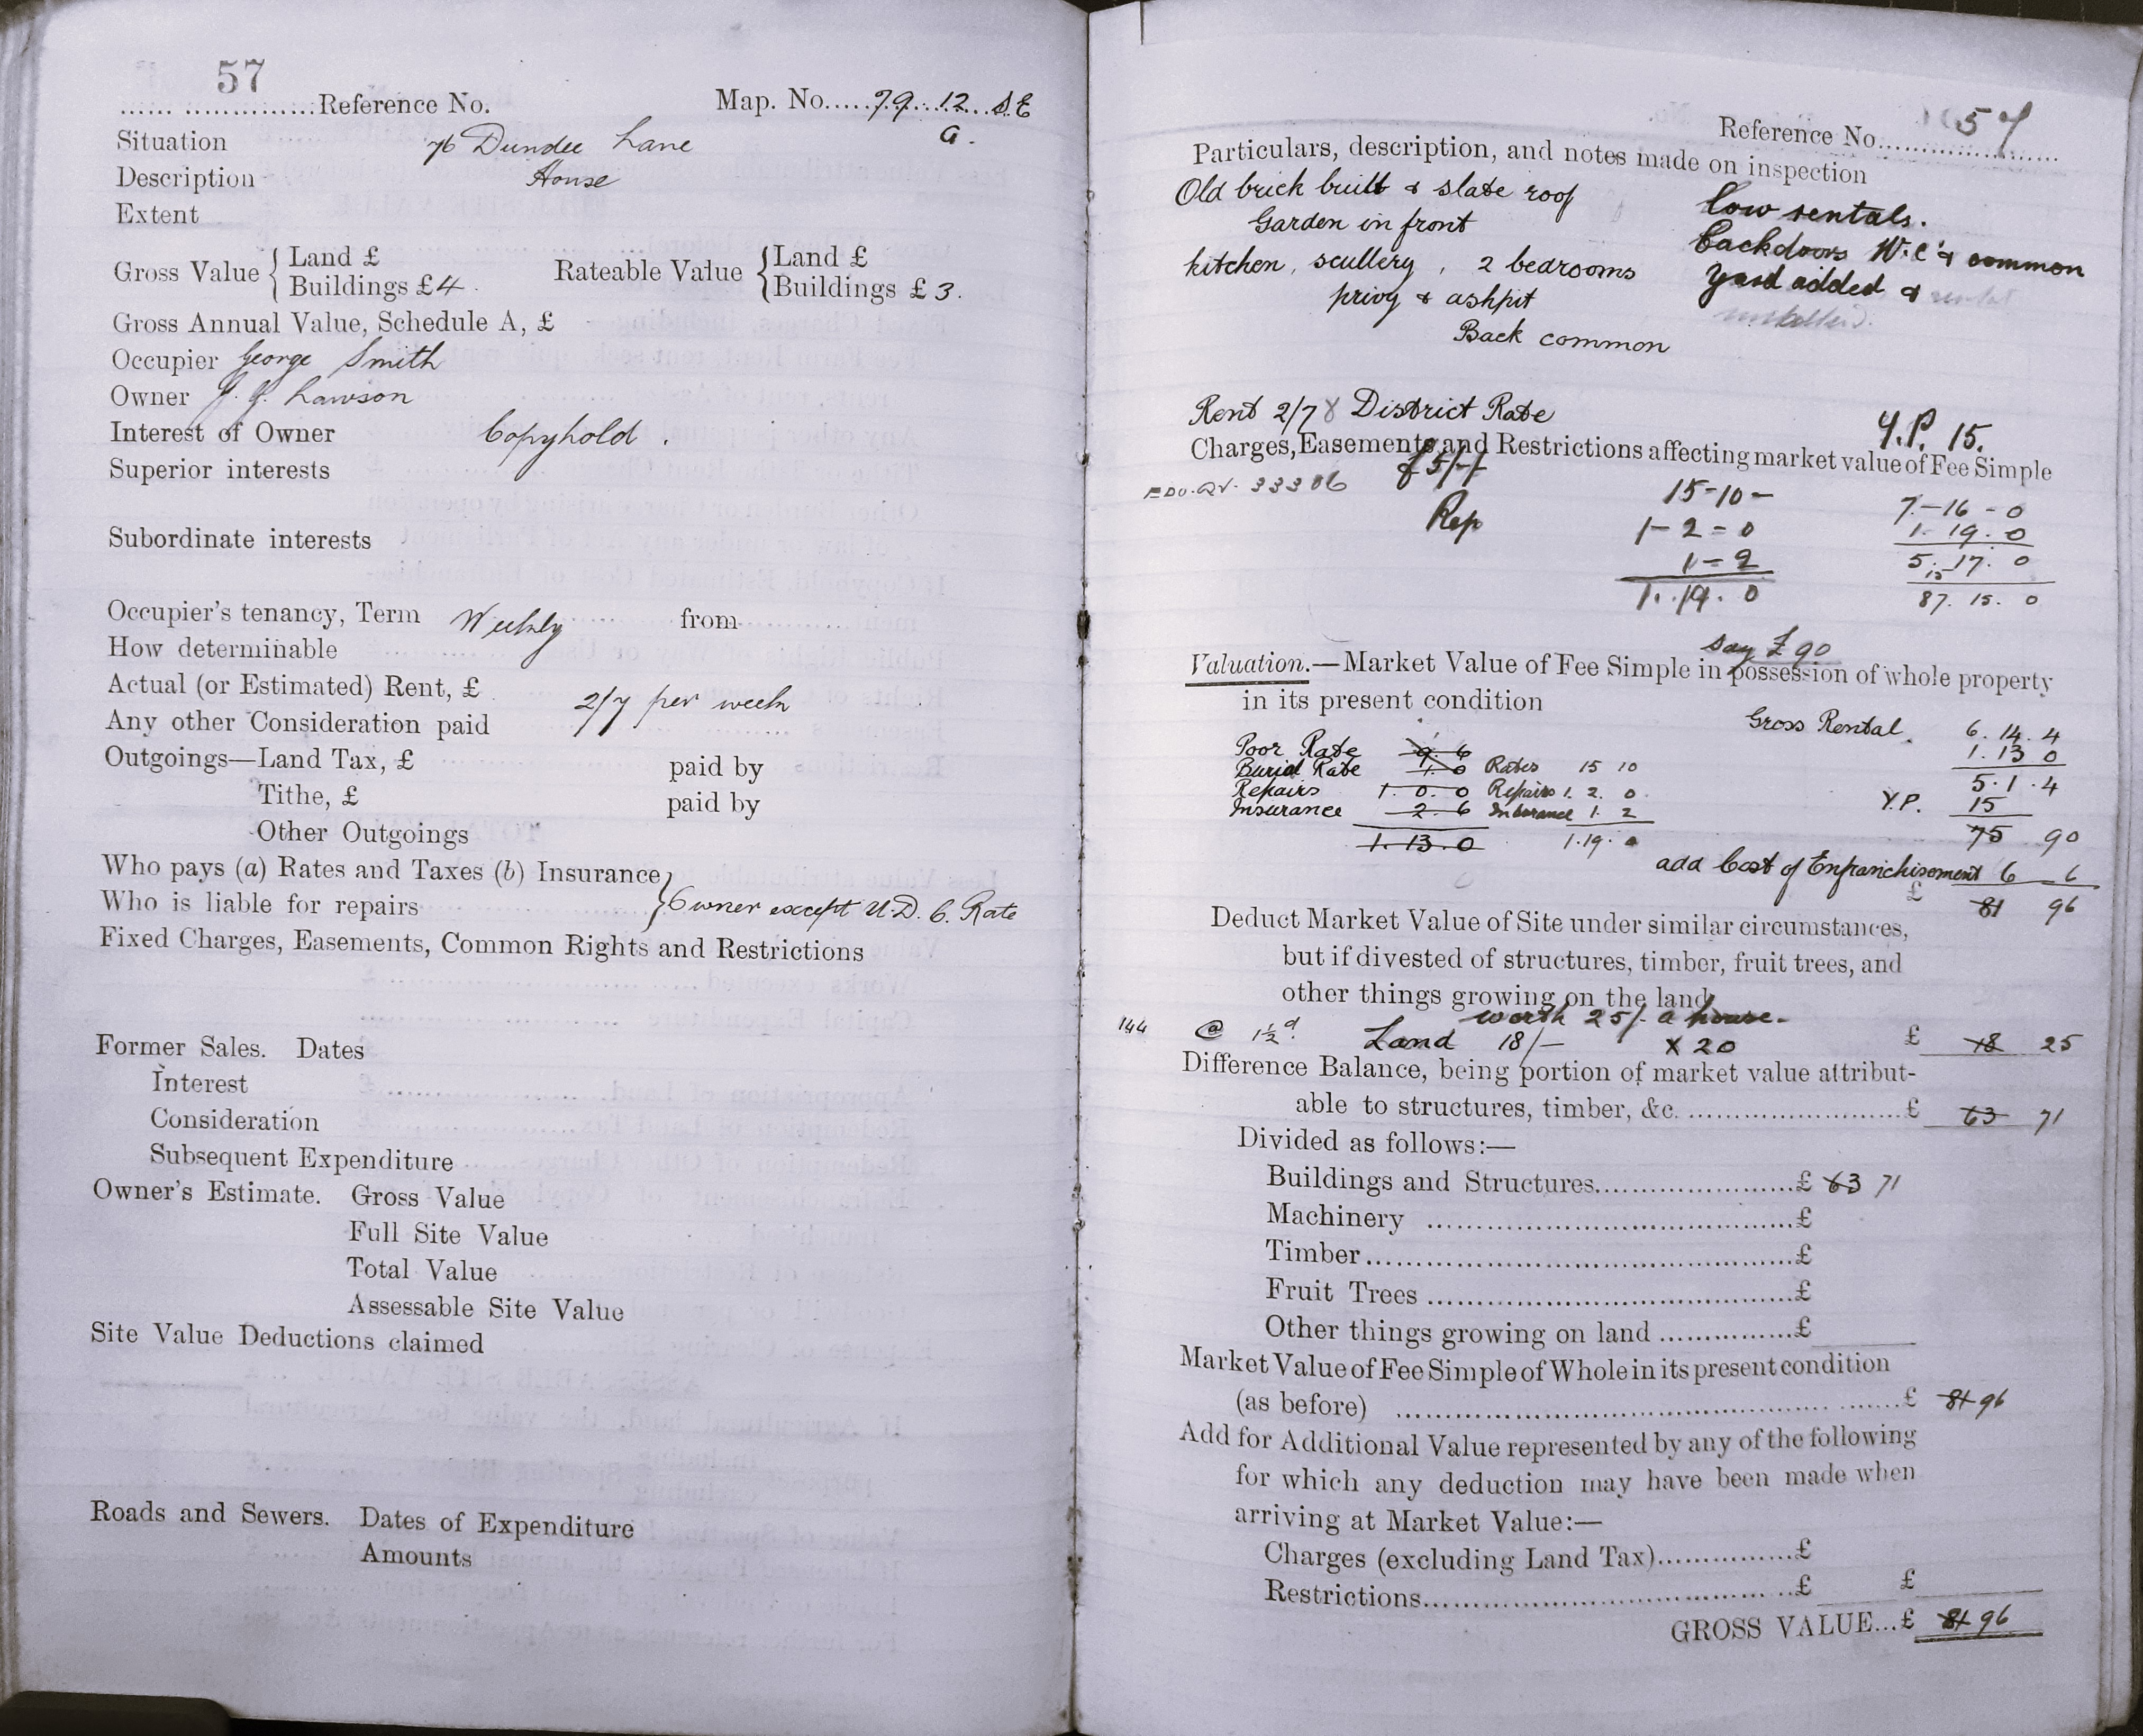 57
Reference No. Map. No. 79 12 S.E
a.
Situation 76 Dundee Lane
Description House
Extent
Gross Value { Land £
Buildings £4.
Rateable Value { Land £
Buildings £3.
Gross Annual Value, Schedule A, £
Occupier George Smith
Owner J. J. Lawson
Interest of Owner Copyhold.
Superior interests
Subordinate interests
Occupier's tenancy, Term Weekly from
How determinable
Actual (or Estimated) Rent, £ 2/7 per week
Any other Consideration paid
Outgoings—Land Tax, £ paid by
Tithe, £ paid by
Other Outgoings
Who pays (a) Rates and Taxes (b) Insurance
Who is liable for repairs } Owner except U.D.C. Rate
Fixed Charges, Easements, Common Rights and Restrictions
Former Sales. Dates
Interest
Consideration
Subsequent Expenditure
Owner's Estimate. Gross Value
Full Site Value
Total Value
Assessable Site Value
Site Value Deductions claimed
Roads and Sewers. Dates of Expenditure
Amounts
Reference No. 57
Particulars, description, and notes made on inspection
Old brick built & slate roof
Garden in front
kitchen, scullery, 2 bedrooms
privy & ashpit
Back common
low rentals.
Backdoors W.C's common
yard added &
Rent 2/7 & District Rate
Y.P. 15.
Charges, Easements and Restrictions affecting market value of Fee Simple
£5/-/-
33306
Rep
15-10-
1-2=0
1-2
1.19.0
7-16-0
1.19.0
5.17.0
15
87.15.0
say £90
Valuation.—Market Value of Fee Simple in possession of whole property
in its present condition
Gross Rental. 6.14.4
1.13 0
5.1.4
Y.P. 15
75 90
Poor Rate 9 6
Burial Rate 1.0 Rates 15 10
Repairs 1.0.0 Repairs 1.2.0.
Insurance 2.6 Insurance 1.2
1.13.0 1.19.0
add Cost of Enfranchisement 6 6
£ 81 96
Deduct Market Value of Site under similar circumstances,
but if divested of structures, timber, fruit trees, and
other things growing on the land
worth 25/- a house.
144 @ 1½d. Land 18/- X 20 £ 18 25
Difference Balance, being portion of market value attribut-
able to structures, timber, &c. £ 63 71
Divided as follows:—
Buildings and Structures £ 63 71
Machinery £
Timber £
Fruit Trees £
Other things growing on land £
Market Value of Fee Simple of Whole in its present condition
(as before) £ 81 96
Add for Additional Value represented by any of the following
for which any deduction may have been made when
arriving at Market Value:—
Charges (excluding Land Tax) £
Restrictions £ £
GROSS VALUE...£ 81 96